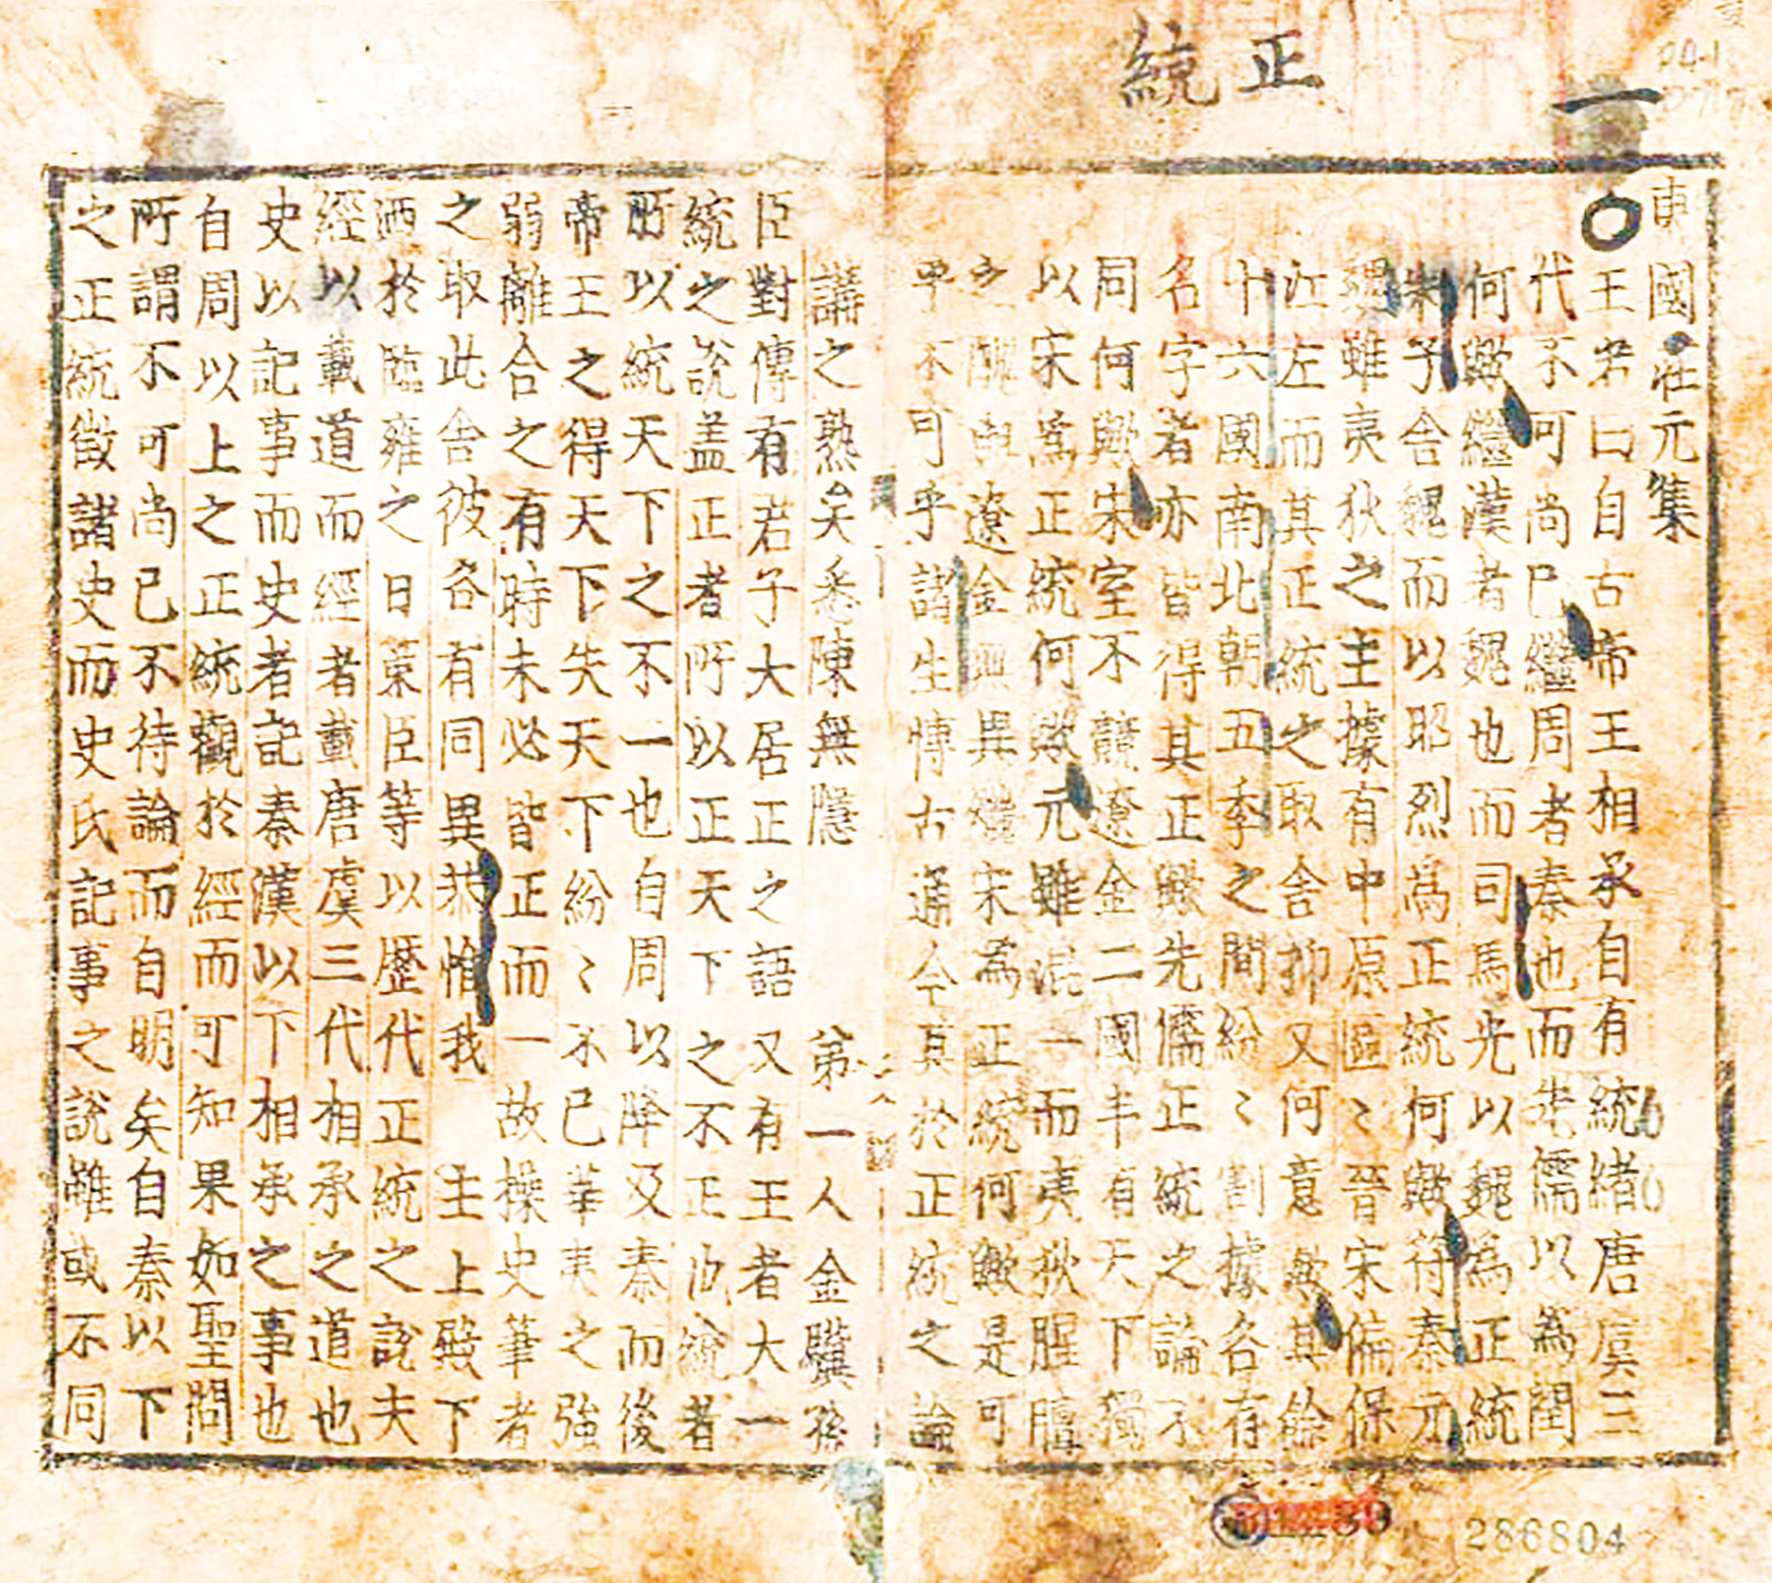 正統
一
東國壯元集
王若曰自古帝王相承自有統緒唐虞三
代不可尚已繼周者秦也而先儒以爲閏
何歟繼漢者魏也而司馬光以魏爲正統
朱子舍魏而以昭烈爲正統何歟符秦元
魏雖夷狄之主據有中原區〻晉宋偏保
江左而其正統之取舍抑又何意歟其餘
十六國南北朝丑季之間紛〻割據各存
名字者亦皆得其正歟先儒正統之論不
同何歟宋室不競遼金二國半有天下獨
以宋爲正統何歟元雖混一而夷狄腥膻
之醜與遼金無異繼宋爲正統何歟是可
乎不可乎諸生博古通今其於正統之論
講之熟矣悉陳無隱 第一人金驥孫
臣對傳有君子大居正之語又有王者大一
統之說盖正者所以正天下之不正也統者
所以統天下之不一也自周以降及秦而後
帝王之得天下失天下紛〻不已華夷之強
弱離合之有時未必皆正而一故操史筆者
之取此舍彼各有同異恭惟我 主上殿下
洒於臨雍之日策臣等以歷代正統之說夫
經以載道而經者載唐虞三代相承之道也
史以記事而史者記秦漢以下相承之事也
自周以上之正統觀於經而可知果如聖問
所謂不可尚已不待論而自明矣自秦以下
之正統徵諸史而史氏記事之說雖或不同
286804